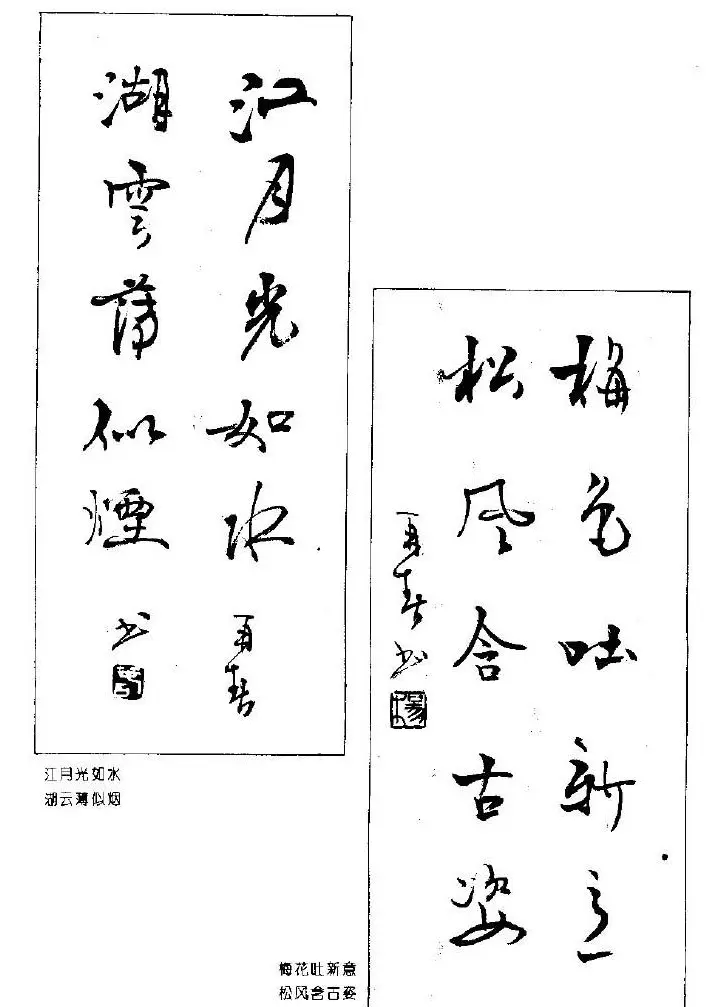 江月光如水 再春
湖雲薄似煙 书
江月光如水
湖云薄似烟
梅花吐新意
松風含古姿
再春书
梅花吐新意
松风含古姿